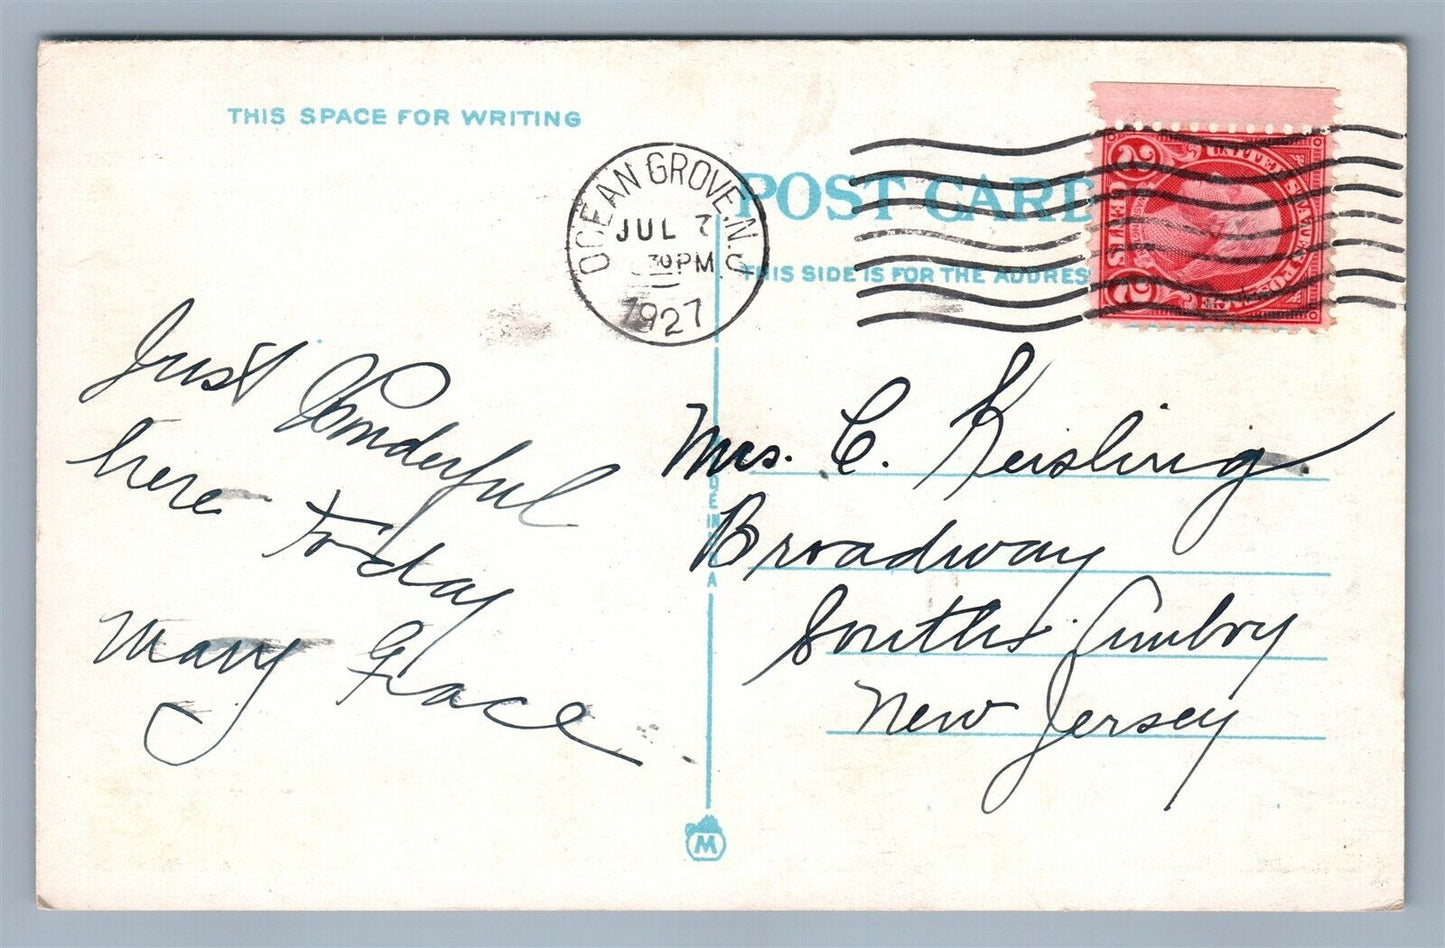 THIS SPACE FOR WRITING
OCEAN GROVE, N.J.
JUL 7
30 PM
1927
POST CARD
THIS SIDE IS FOR THE ADDRES
UNITED STATES POSTAGE
2 CENTS 2
Just Wonderful
here today
Mary Grace
Mrs. C. Keisling
Broadway
South Amboy
New Jersey
M